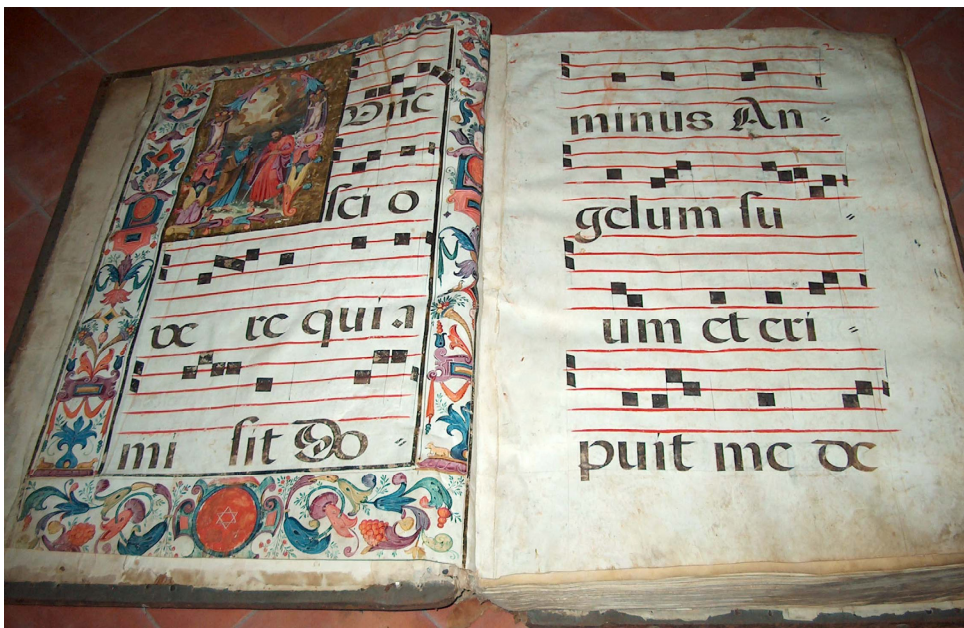 Unc
ſci o
ve re qui a
mi ſit Do =
minus An =
gelum ſu =
um et eri =
puit me de